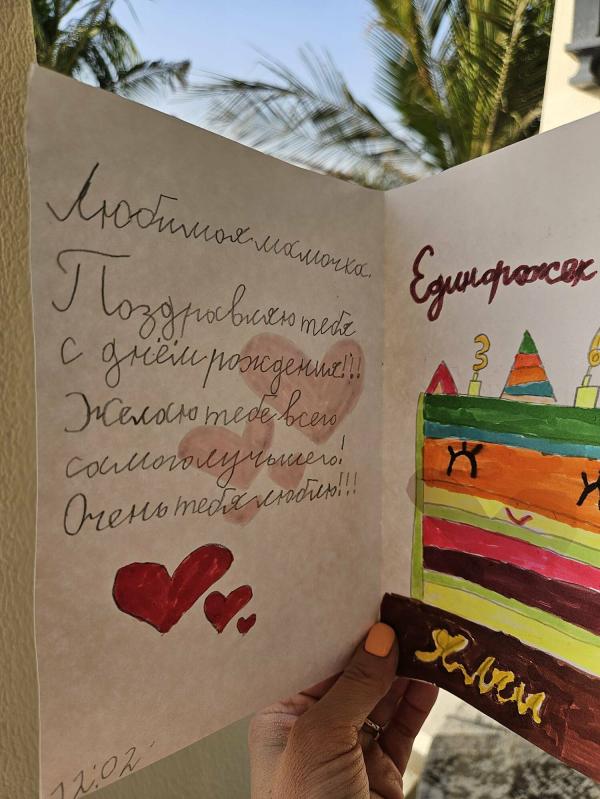 Любимая мамочка.
Поздравляю тебя
с днём рождения!!!
Желаю тебе всего
самого лучшего!
Очень тебя люблю!!!
12:02
Единорожек
3